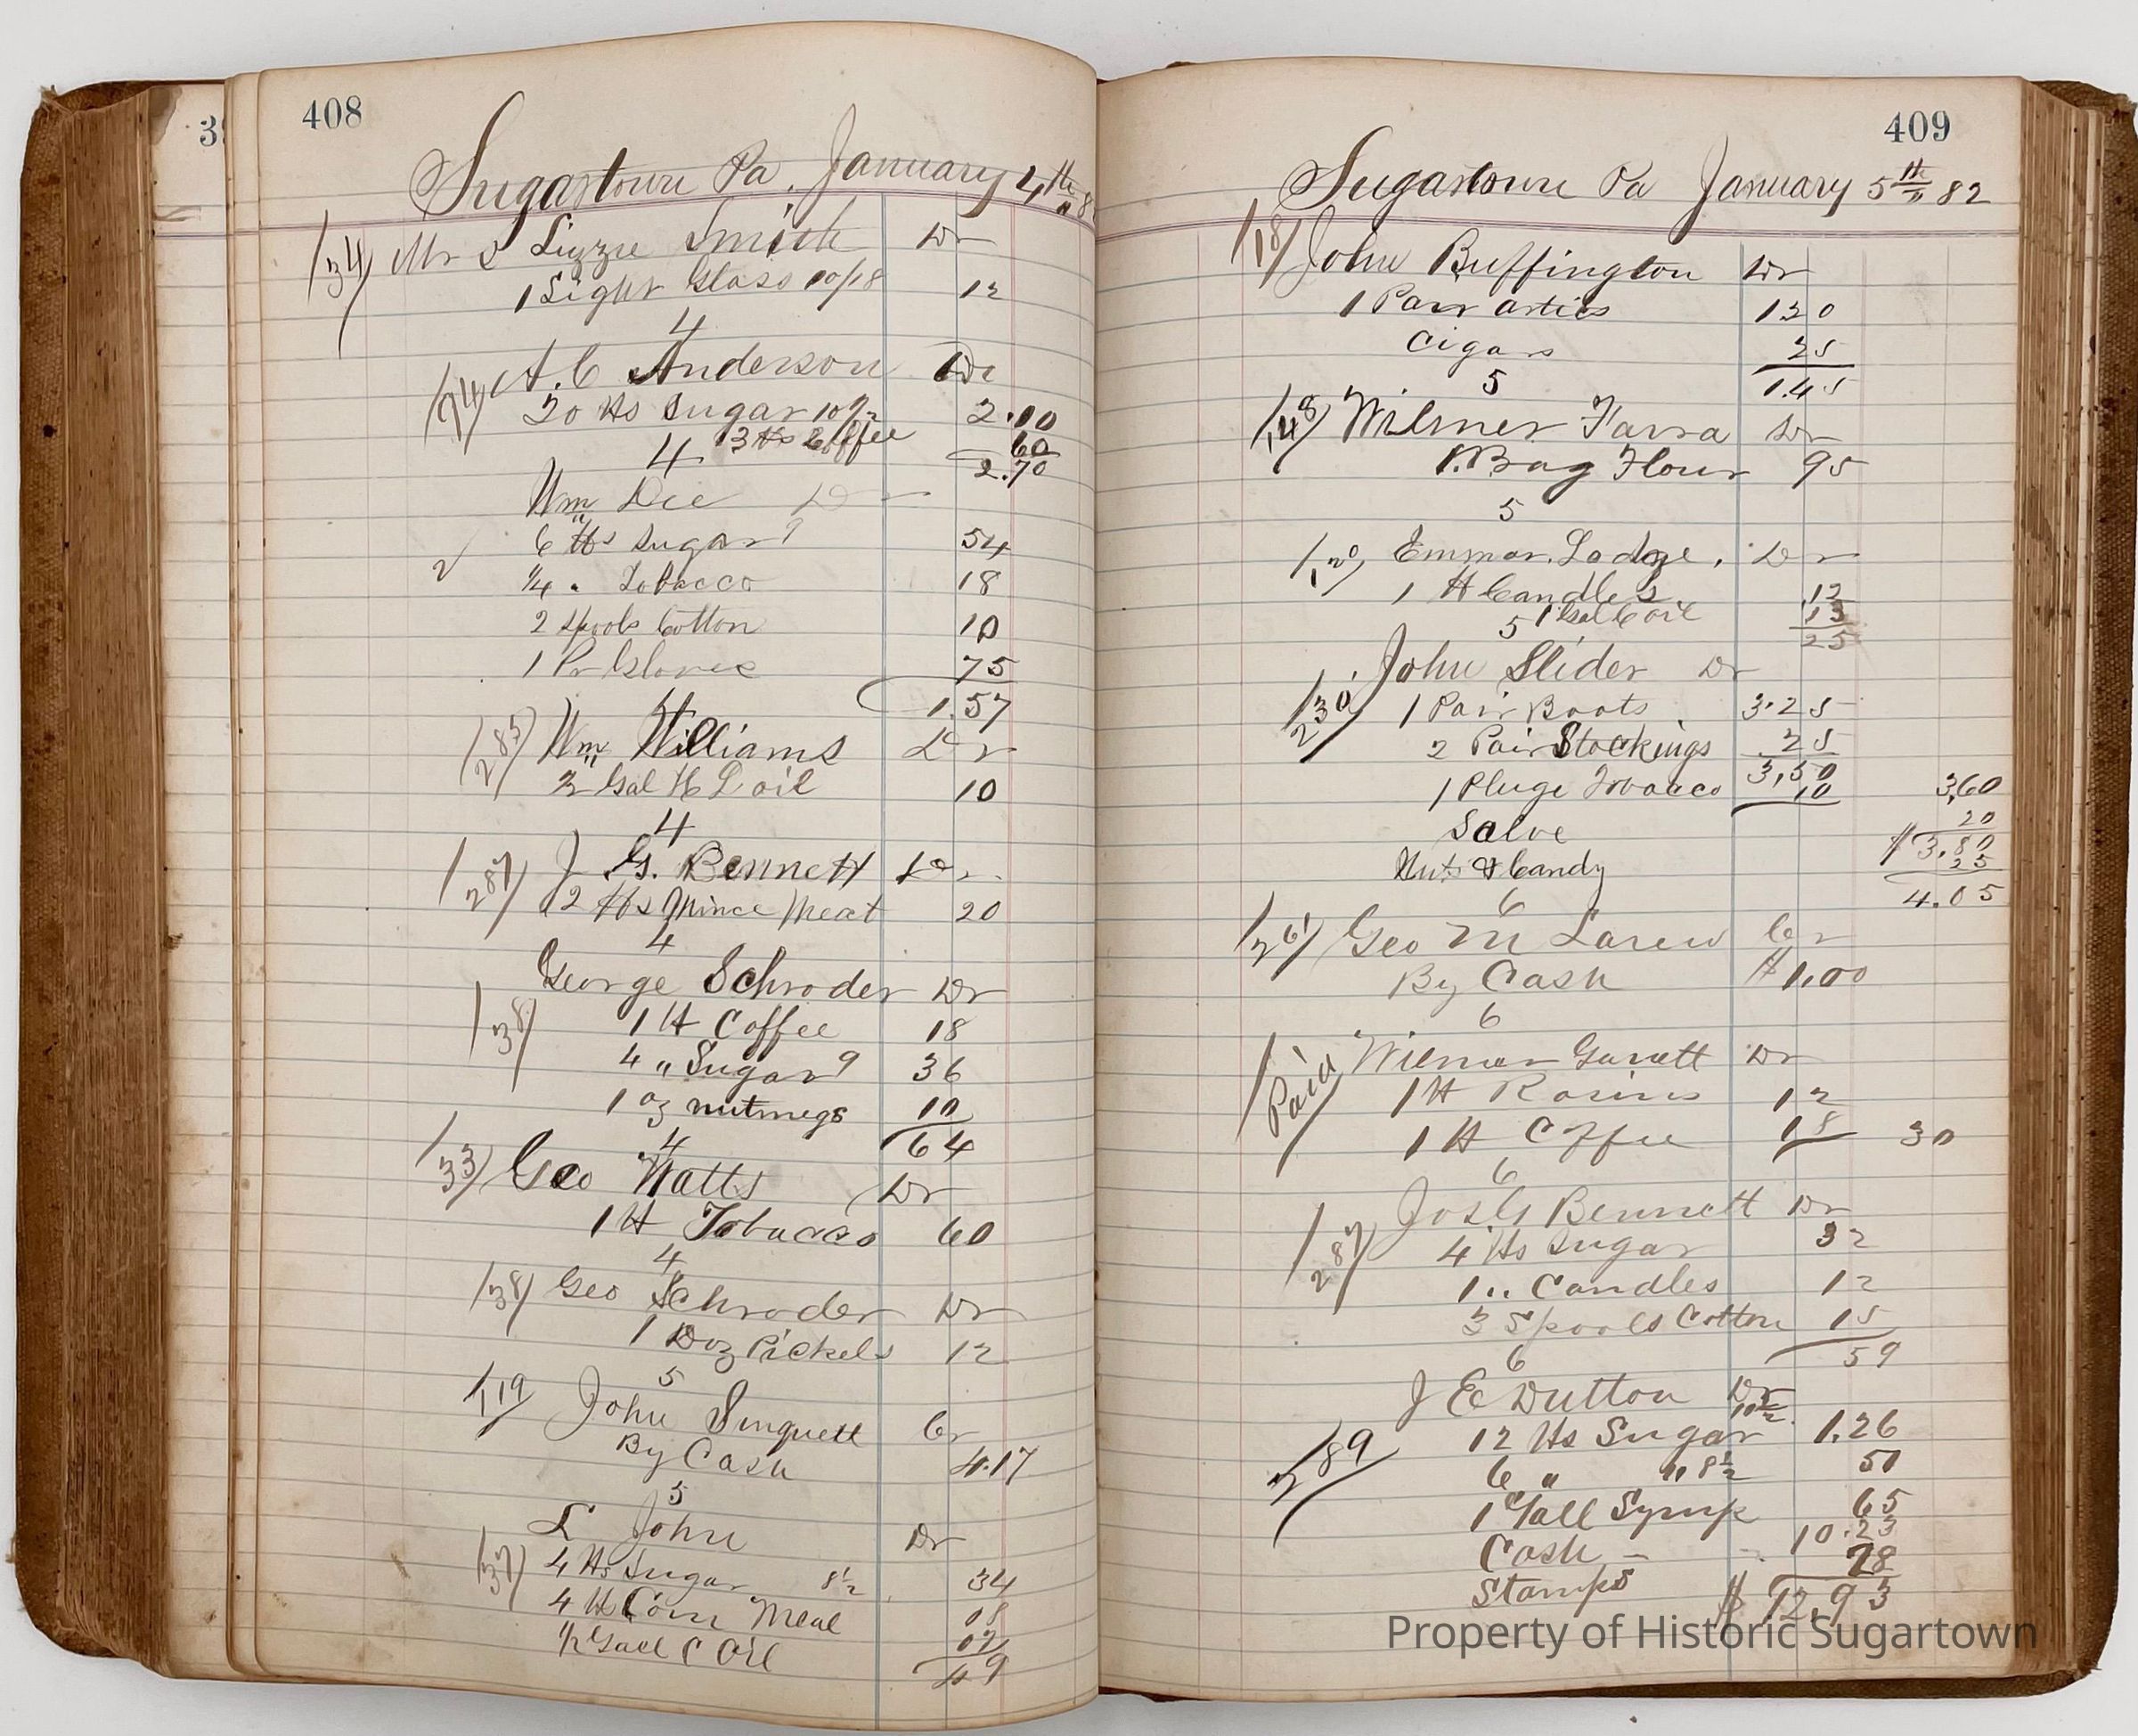 408
Sugartown Pa. January 4th 8
34 Mrs Lizzie Smith Dr
1 Light Glass 10/18 12
4
74 A. C Anderson Dr
20 lbs Sugar 10½ 2.10
3 lbs Coffee 60
4 2.70
Wm Die Dr
6 lbs Sugar 9 54
¼ " Tobacco 18
2 Spools Cotton 10
1 Pr Gloves 75
4 1.57
285 Wm Williams Dr
½ Gal H L oil 10
4
287 J G. Bennett Dr
2 lbs Mince Meat 20
4
George Schroder Dr
38 1 lb Coffee 18
4 " Sugar 9 36
1 oz nutmegs 10
4 64
33 Geo Watts Dr
1 lb Tobacco 60
4
38 Geo Schroder Dr
1 Doz Pickels 12
5
119 John Cr
By Cash 4.17
5
L John Dr
37 4 lbs Sugar 8½ 34
4 lb Corn Meal 08
½ Gall C Oil 07
49
409
Sugartown Pa January 5th 82
118 John Buffington Dr
1 Pair artics 120
Cigars 25
5 1.45
148 Wilmer Farra Dr
1 Bag Flour 95
5
120 Emmor Lodge. Dr
1 lb Candles 12
1 Gal C oil 13
5 25
John Slider Dr
230 1 Pair Boots 3.25
2 Pair Stockings 25
3,50
1 Pluge Tobacco 10 3,60
Salve 20
$3.80
Nuts & Candy 25
6 4.05
261 Geo M Larew Cr
By Cash $1.00
6
Paid Wilmer Garrett Dr
1 lb Rasins 12
1 lb Coffee 18 30
6
Jos G Bennett Dr
287 4 lbs Sugar 32
1 " Candles 12
3 Spools Cotton 15
6 59
J E Dutton Dr
10½
289 12 lbs Sugar 1.26
6 " " 8½ 51
1 Gall Syrup 65
Cash 10.23
Stamps 28
$12.93
Property of Historic Sugartown